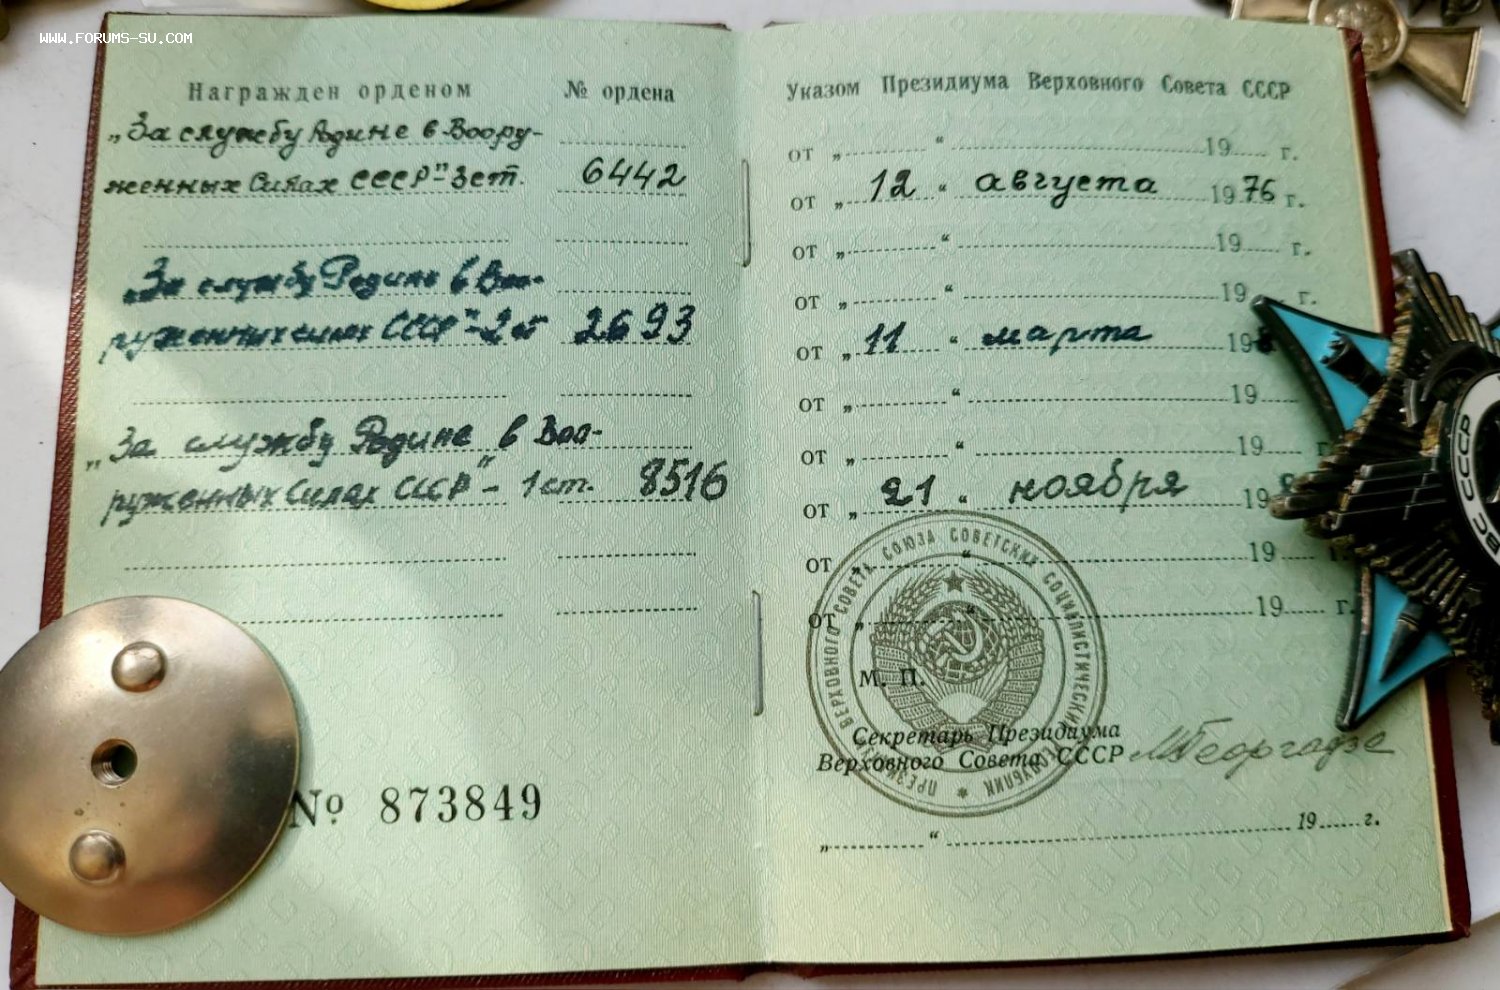 WWW.FORUMS-SU.COM
Награжден орденом № ордена
„За службу Родине в Воору-
женных Силах СССР" 3 ст. 6442
„За службу Родине в Воо-
руженных силах СССР"-2 ст 2693
„За службу Родине в Воо-
руженных Силах СССР" - 1 ст. 8516
№ 873849
Указом Президиума Верховного Совета СССР
от „ “ 19 г.
от „ 12 “ августа 1976 г.
от „ “ 19 г.
от „ “ 19 г.
от „ 11 “ марта 19
от „ “ 19
от „ “ 19 г
от „ 21 “ ноября 19
от „ “ 19
от „ “ 19 г.
М. П.
ПРЕЗИДИУМ ВЕРХОВНОГО СОВЕТА СОЮЗА СОВЕТСКИХ СОЦИАЛИСТИЧЕСКИХ РЕСПУБЛИК
Секретарь Президиума
Верховного Совета СССР МГеоргадзе
„ “ 19 г.
ВС СССР